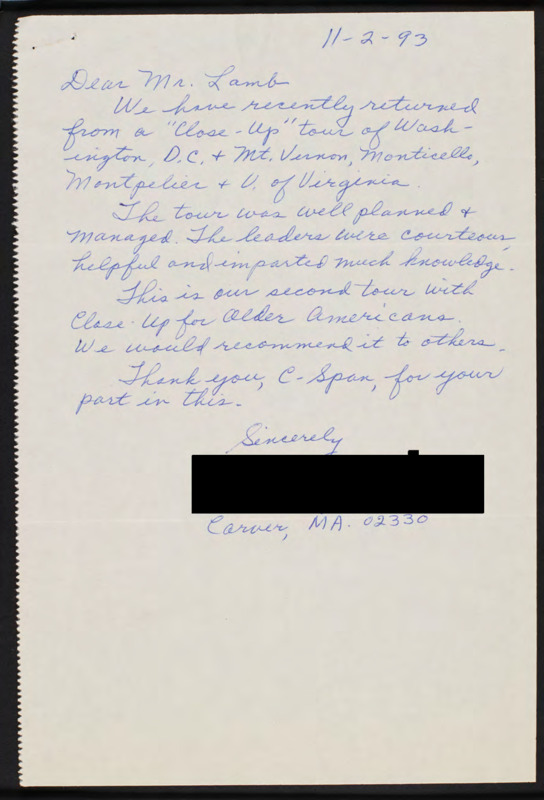 11-2-93
Dear Mr. Lamb
We have recently returned
from a "Close-Up" tour of Wash-
ington, D.C. + Mt. Vernon, Monticello,
Montpelier + U. of Virginia.
The tour was well planned +
managed. The leaders were courteous,
helpful and imparted much knowledge.
This is our second tour with
Close-Up for Older Americans.
We would recommend it to others.
Thank you, C-Span, for your
part in this.
Sincerely
Carver, MA. 02330